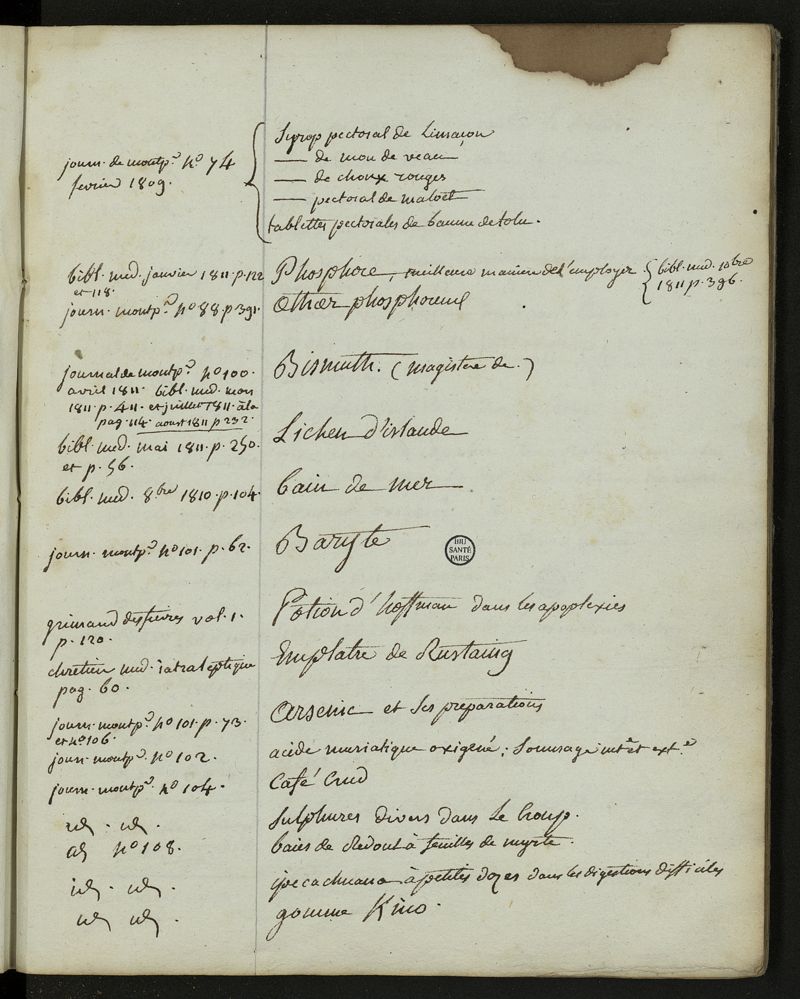 journ. de montp.r no 74
fevrier 1809.
Syrop pectoral de Limaçon
— de mou de veau
— de choux rouges
— pectoral de maloët
tablettes pectorales de baume de tolu.
bibl. med. janvier 1811. p. 122
et 118.
Phosphore, meilleure maniere de l'employer
bibl. med. 10bre
1811 p. 396.
journ. montp.r no 88 p. 391.
Æther phosphoreux
journal de montp.r no 100.
avril 1811. bibl. med. mars
1811. p. 411. et juillet 1811. à la
pag. 114. aoust 1811 p 232.
Bismuth. (magistere de.)
bibl. med. mai 1811. p. 250.
et p. 56.
Lichen d'islande
bibl. med. 8bre 1810. p. 104.
bain de mer
journ. montp.r no 101. p. 62.
Baryte
BIU
SANTÉ
PARIS
grimaud des fievres vol. 1.
p. 120.
Potion d'hoffman dans les apoplexies
chretien med. iatraleptique
pag. 60.
Emplatre de Rustaing
journ. montp.r no 101. p. 73.
et no 106.
arsenic et ses preparations
journ. montp.r no 102.
acide muriatique oxigené; son usage int. et ext.
journ. montp.r no 104.
Café Crud
id. id.
Sulphures divers dans le Croup.
id no 108.
baies de Redout à feuilles de myrte.
id. id.
ipecachuana à petites dozes dans les digestions difficiles
id id.
gomme Kino.